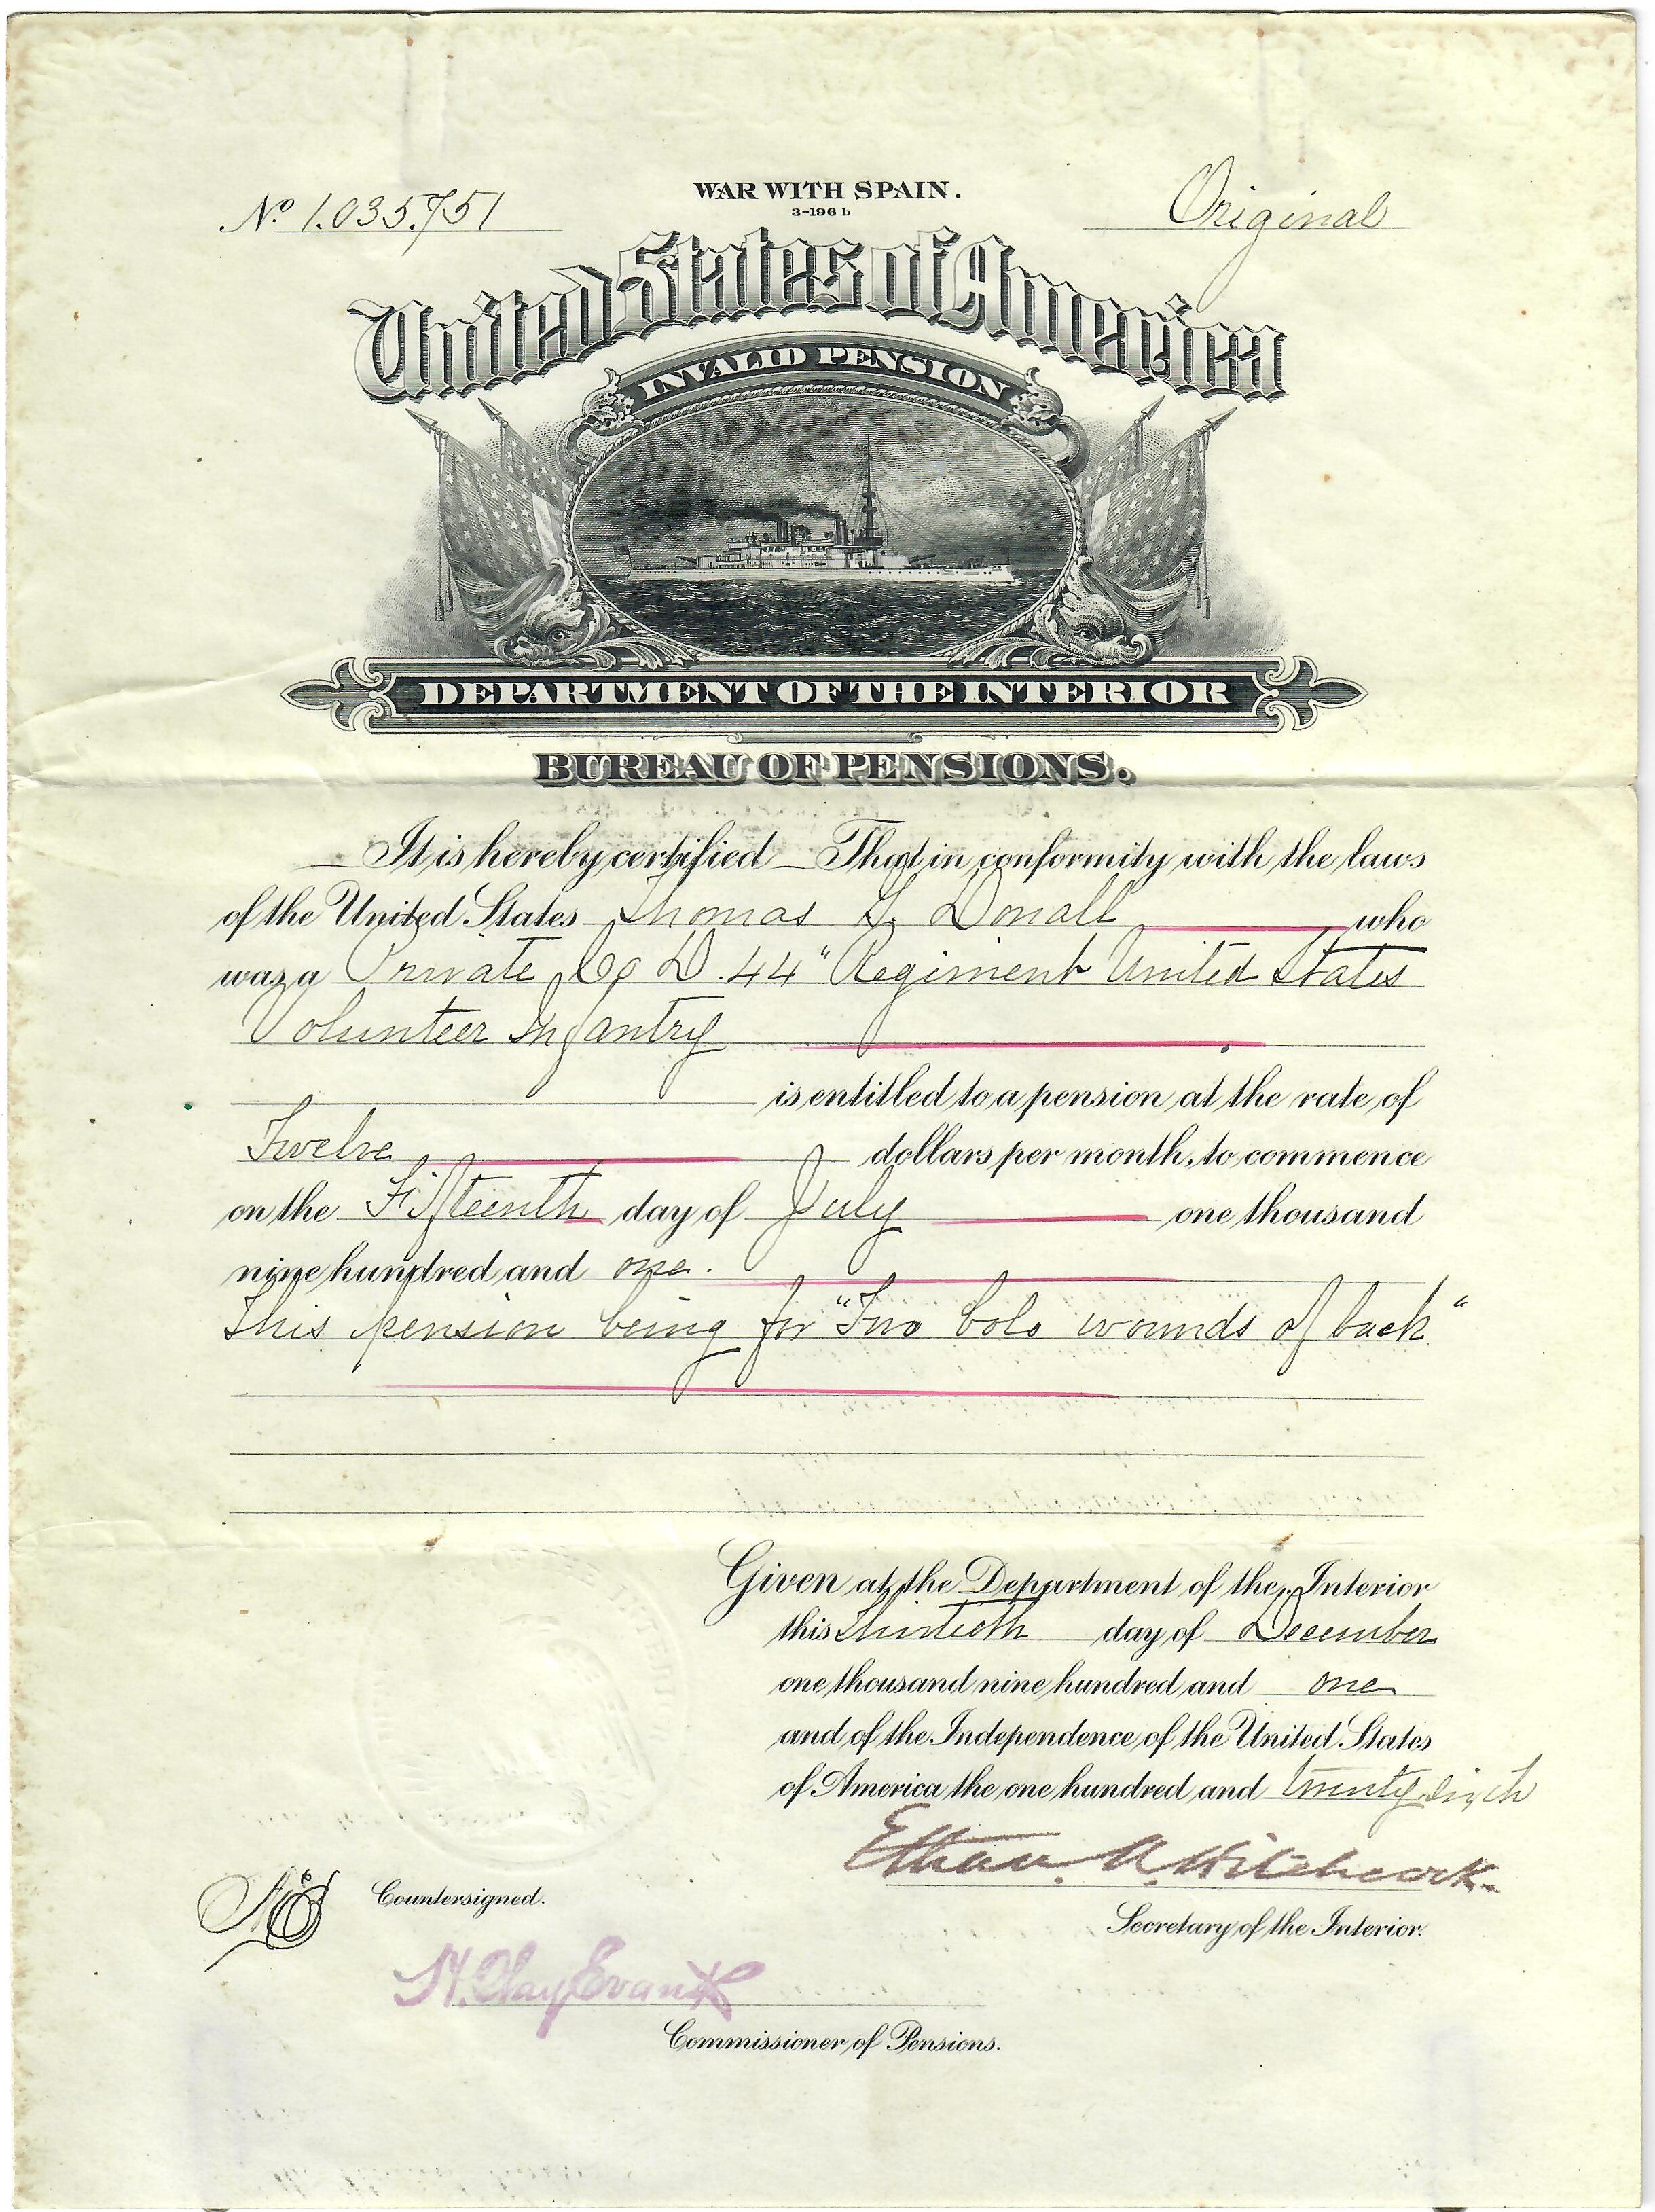 WAR WITH SPAIN.
3-196 b
Nº 1.035.751
Original
United States of America
INVALID PENSION
DEPARTMENT OF THE INTERIOR
BUREAU OF PENSIONS.
It is hereby certified That in conformity with the laws
of the United States Thomas G. Donall who
was a Private, Co D. 44" Regiment United States
Volunteer Infantry
is entitled to a pension at the rate of
Twelve dollars per month, to commence
on the Fifteenth day of July one thousand
nine hundred and one.
This pension being for "Two bolo wounds of back"
Given at the Department of the Interior
this Thirtieth day of December
one thousand nine hundred and one
and of the Independence of the United States
of America the one hundred and twenty sixth
Ethan A. Hitchcock.
Secretary of the Interior.
Countersigned.
H. Clay Evans
Commissioner of Pensions.